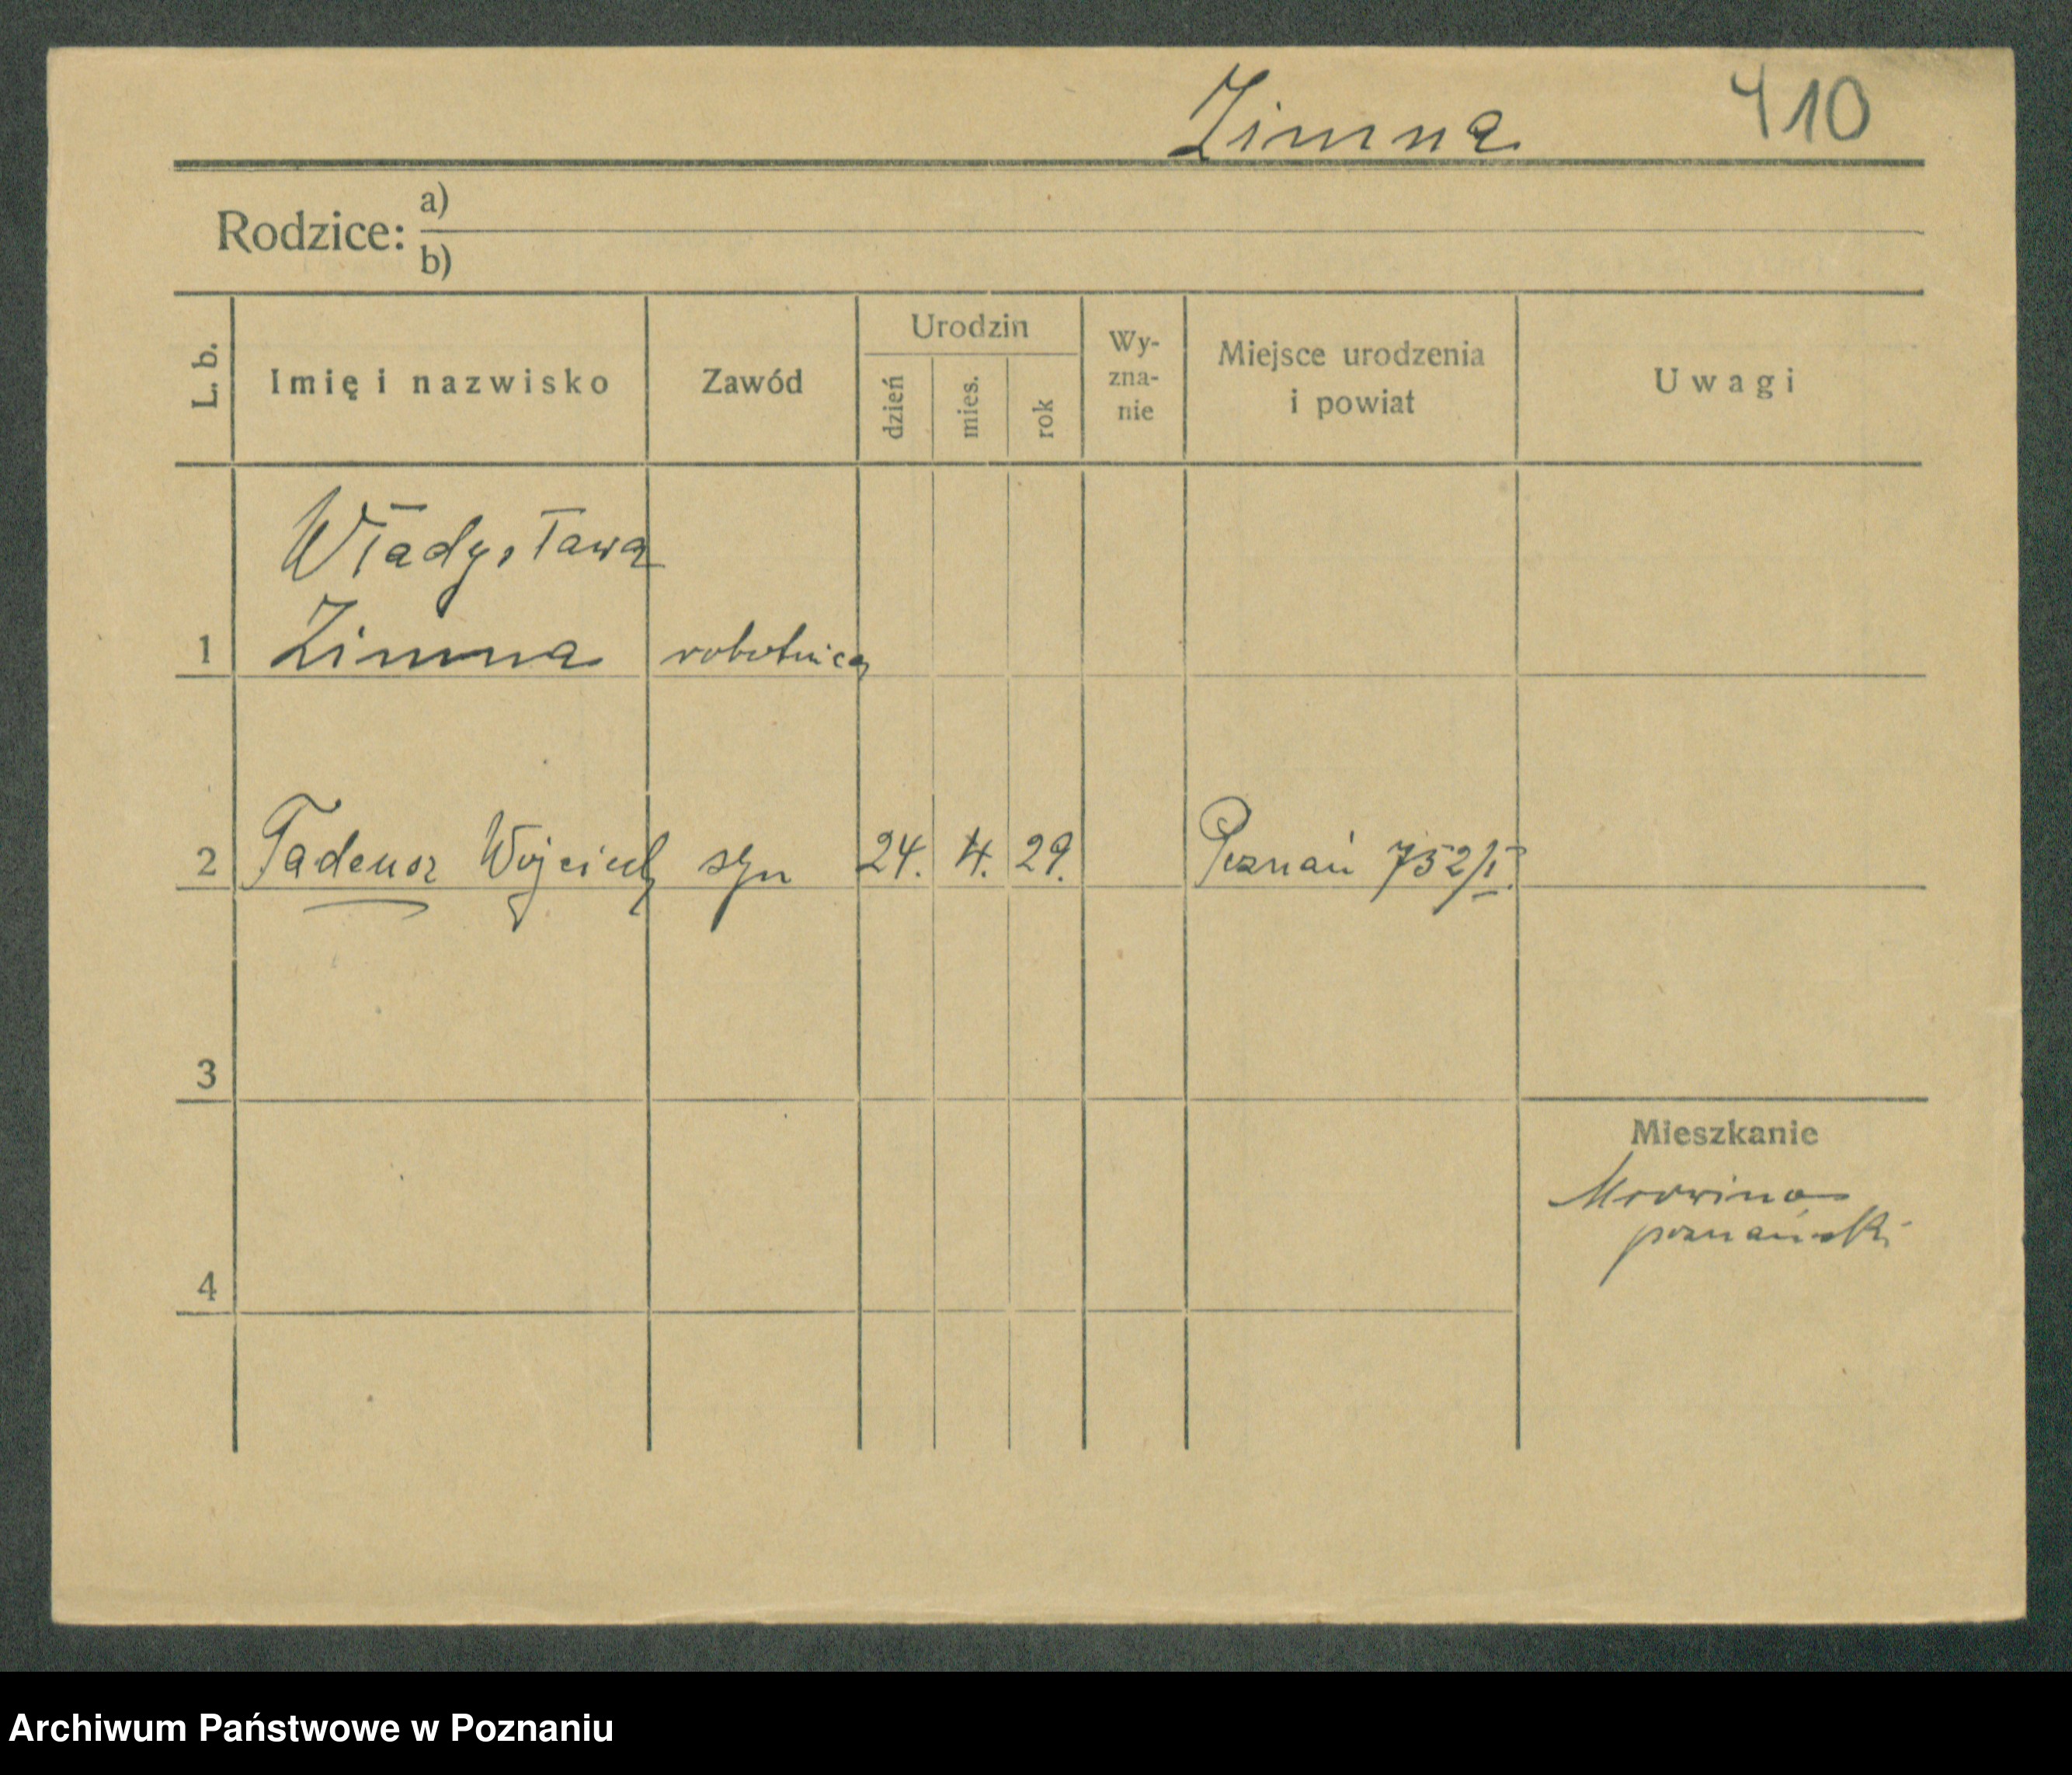 Zimna 410
Rodzice: a)
b)
L. b. Imię i nazwisko Zawód Urodzin dzień mies. rok Wy-zna-nie Miejsce urodzenia i powiat Uwagi
Władysława
1 Zimna robotnica
2 Tadeusz Wojciech syn 24. 4. 29. Poznań 752/I
3
Mieszkanie
Mrowino
poznański
4
Archiwum Państwowe w Poznaniu